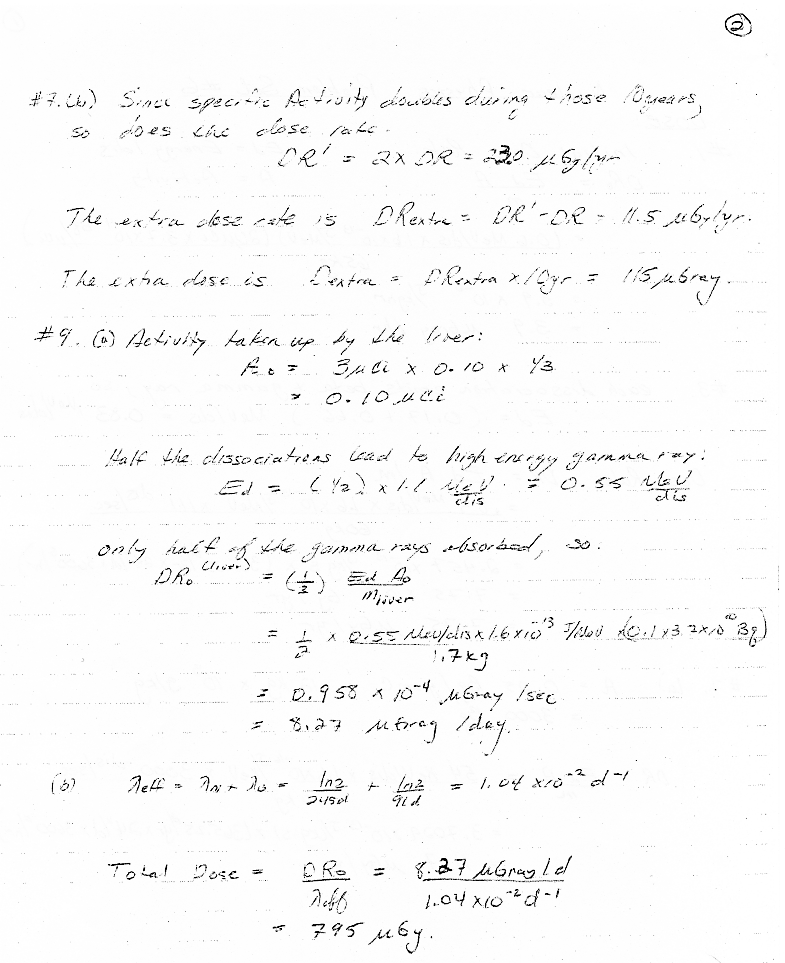 2
#7. (b) Since specific Activity doubles during those 10 years,
so does the dose rate.
DR' = 2 x DR = 230 μGy/yr
The extra dose rate is DRextra = DR' - DR = 11.5 μGy/yr.
The extra dose is Dextra = DRextra x 10yr = 115 μGray.
#9. (a) Activity taken up by the liver:
A₀ = 3μCi x 0.10 x 1/3
= 0.10 μCi
Half the dissociations lead to high energy gamma ray:
Ed = (1/2) x 1.1 MeV/dis = 0.55 MeV/dis
only half of the gamma rays absorbed, so:
DR₀ (liver) = (1/2) Ed A₀ / Mliver
= 1/2 x 0.55 MeV/dis x 1.6 x 10⁻¹³ J/MeV x (0.1 x 3.7 x 10 Bq) / 1.7 kg
= 0.958 x 10⁻⁴ μGray /sec
= 8.27 μGray /day.
(b) λeff = λN + λb = ln2/245d + ln2/91d = 1.04 x 10⁻² d⁻¹
Total Dose = DR₀/λeff = 8.27 μGray/d / 1.04 x 10⁻² d⁻¹
= 795 μGy.